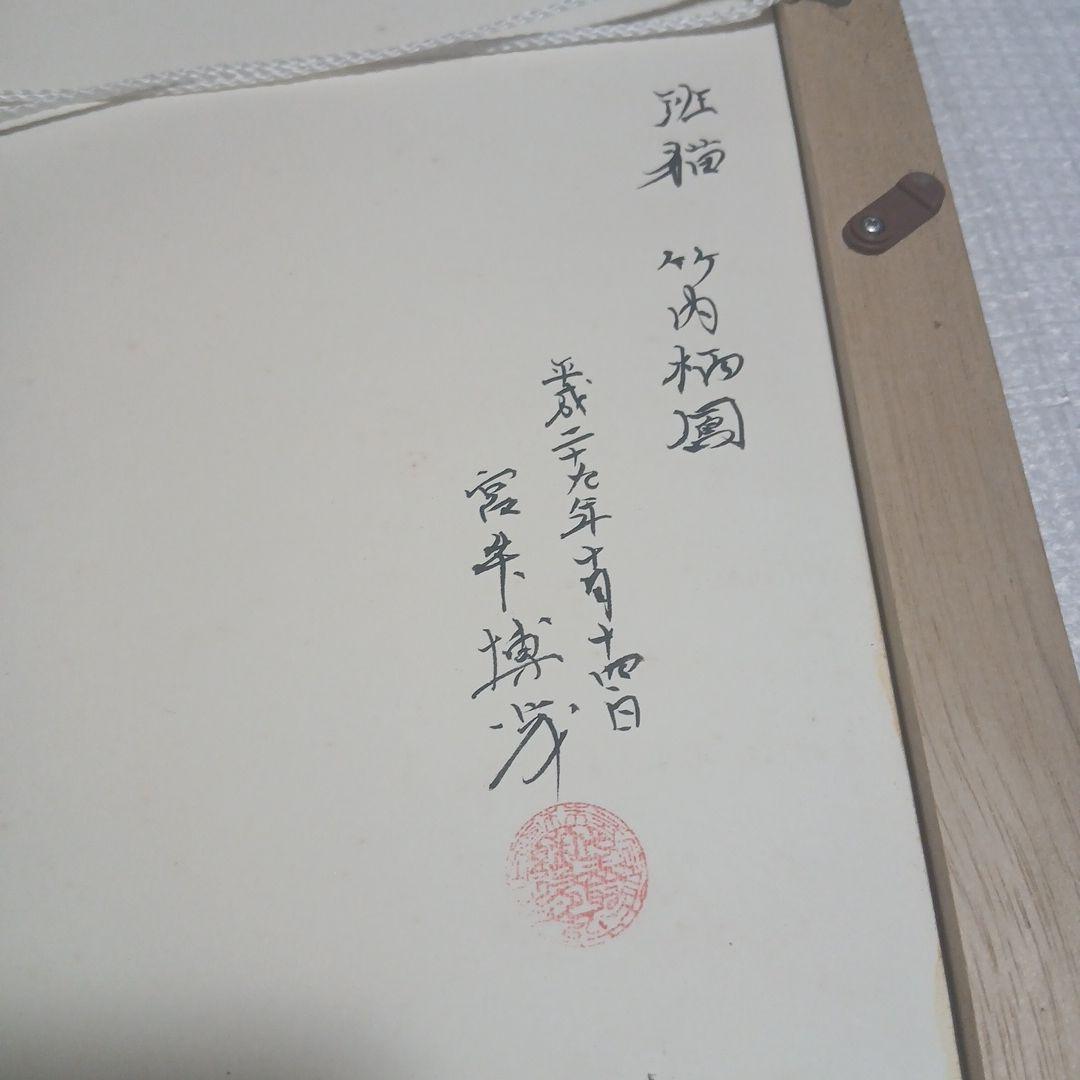 班猫 竹内栖鳳
平成二十九年十月十四日
宮井博